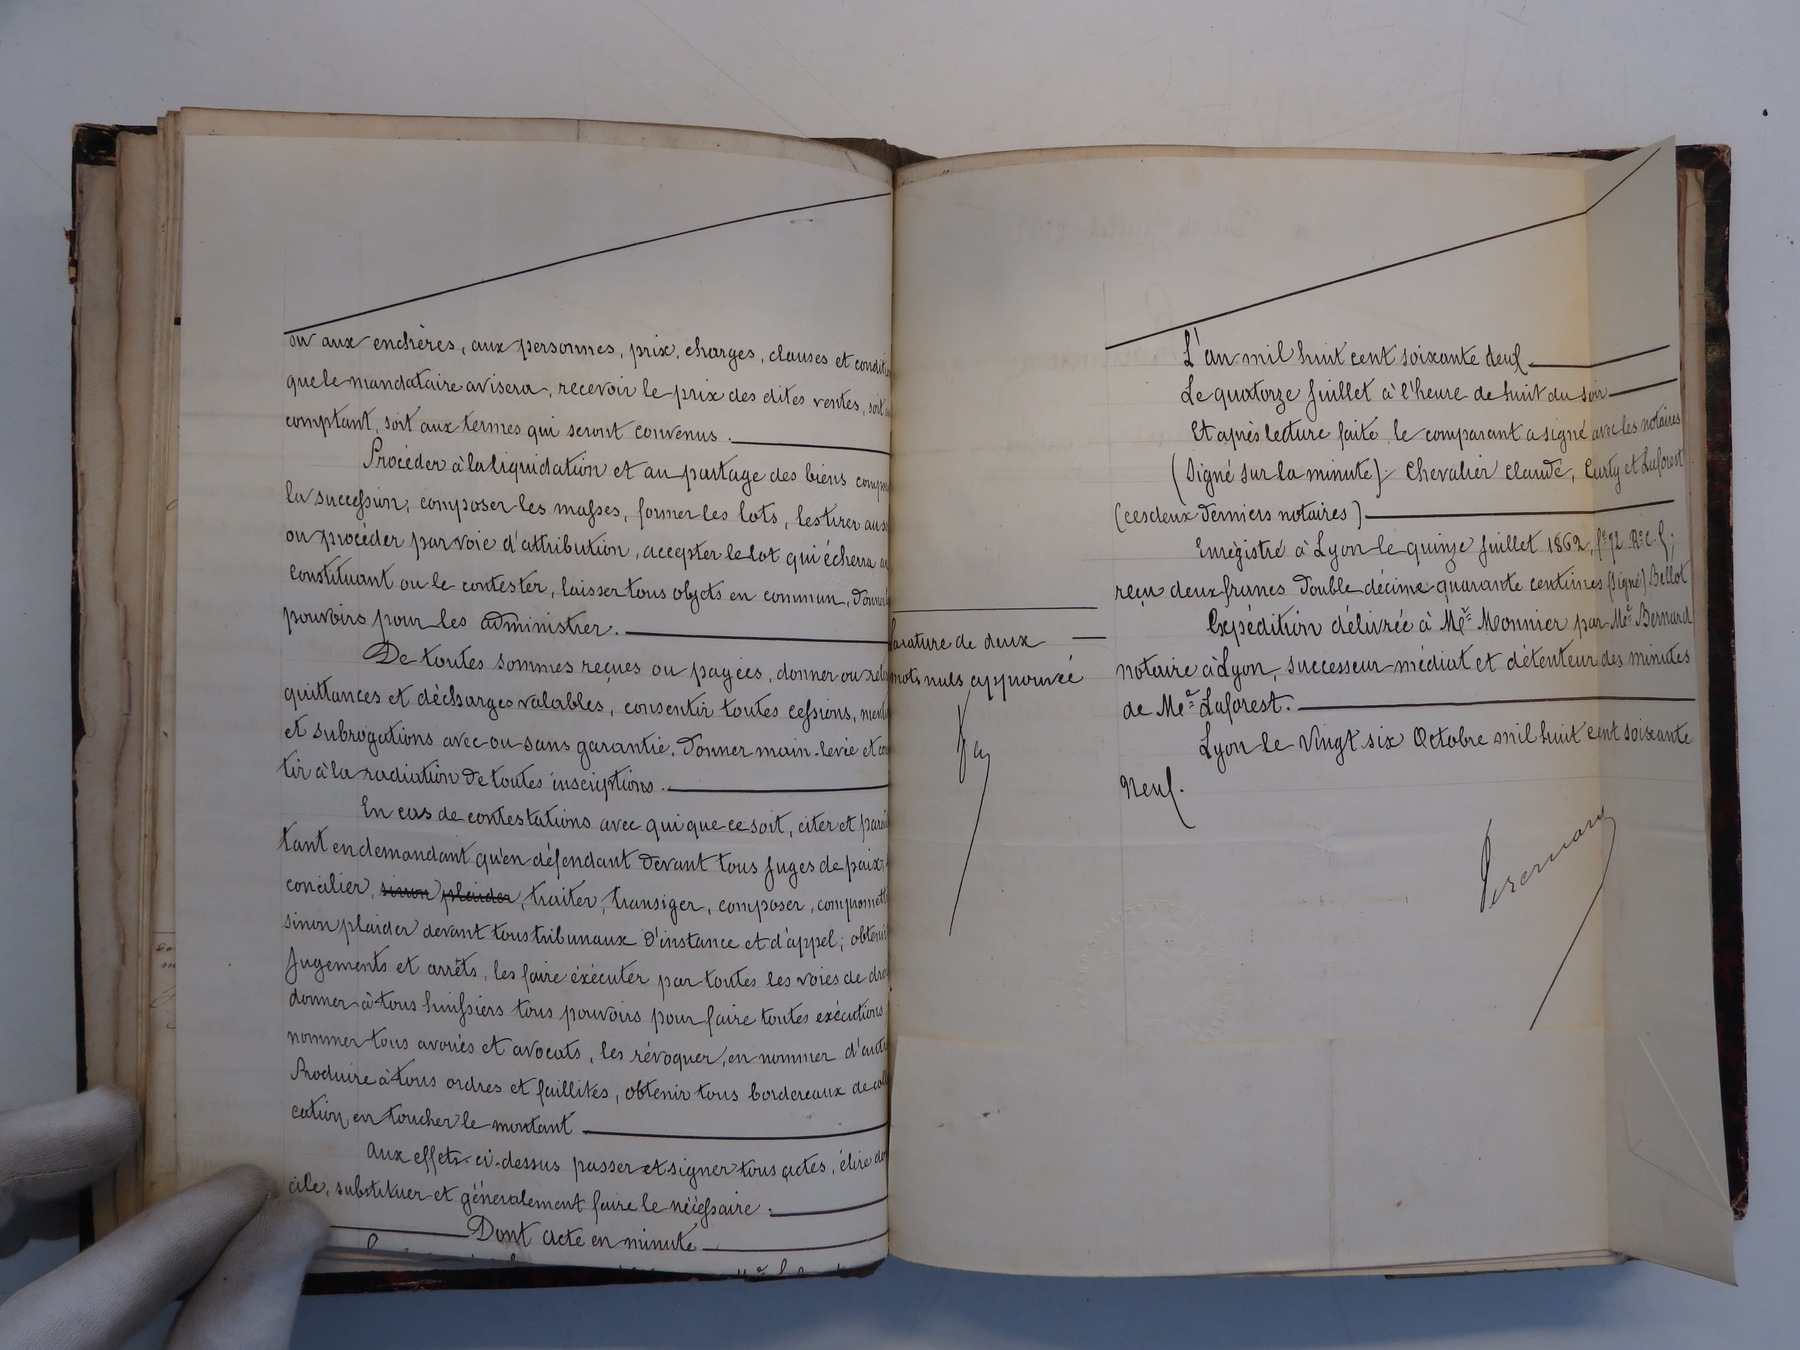 ou aux enchères, aux personnes, prix, charges, clauses et conditio
que le mandataire avisera, recevoir le prix des dites ventes, soit au
comptant, soit aux termes qui seront convenus.
Procéder à la liquidation et au partage des biens compos
la succession, composer les masses, former les lots, les tirer au s
ou procéder par voie d'attribution, accepter le lot qui écherra au
Constituant ou le contester, laisser tous objets en commun, donner
pouvoirs pour les administrer.
De toutes sommes reçues ou payées, donner ou reti
quittances et décharges valables, consentir toutes cessions, ment
et subrogations avec ou sans garantie. Donner main-levée et con
tir à la radiation de toutes inscriptions.
En cas de contestations avec qui que ce soit, citer et paraî
tant en demandant qu'en défendant devant tous Juges de paix,
concilier, sinon plaider, traiter, transiger, composer, compromett
sinon plaider devant tous tribunaux d'instance et d'appel; obtenir
Jugements et arrêts, les faire éxécuter par toutes les voies de dro
donner à tous huissiers tous pouvoirs pour faire toutes exécutions
nommer tous avoués et avocats, les révoquer, en nommer d'autr
Produire à tous ordres et faillites, obtenir tous bordereaux de coll
cation, en toucher le montant
Aux effets ci-dessus passer et signer tous actes, élire do
cile, substituer et généralement faire le nécessaire.
Dont acte en minute
rature de deux
mots nuls approuvée
L'an mil huit cent soixante deux
Le quatorze Juillet à l'heure de huit du soir
Et après lecture faite le comparant a signé avec les notaires
(Signé sur la minute): Chevalier Claude, Carty et Laforest
(ces deux derniers notaires)
Enregistré à Lyon le quinze Juillet 1862, f° 92 R° C. 9;
reçu deux francs double décime quarante centimes (Signé) Bellot
Expédition délivrée à Me Monnier par Me Bernard
notaire à Lyon, successeur médiat et détenteur des minutes
de Me Laforest.
Lyon le vingt six Octobre mil huit cent soixante
Neuf.
Bernard